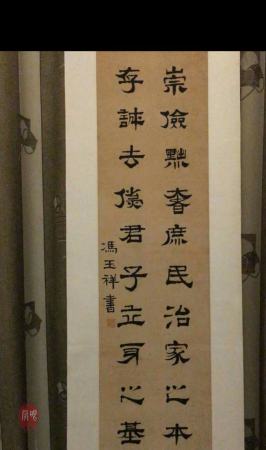 崇儉黜奢庶民治家之本
存誠去僞君子立身之基
馮玉祥書